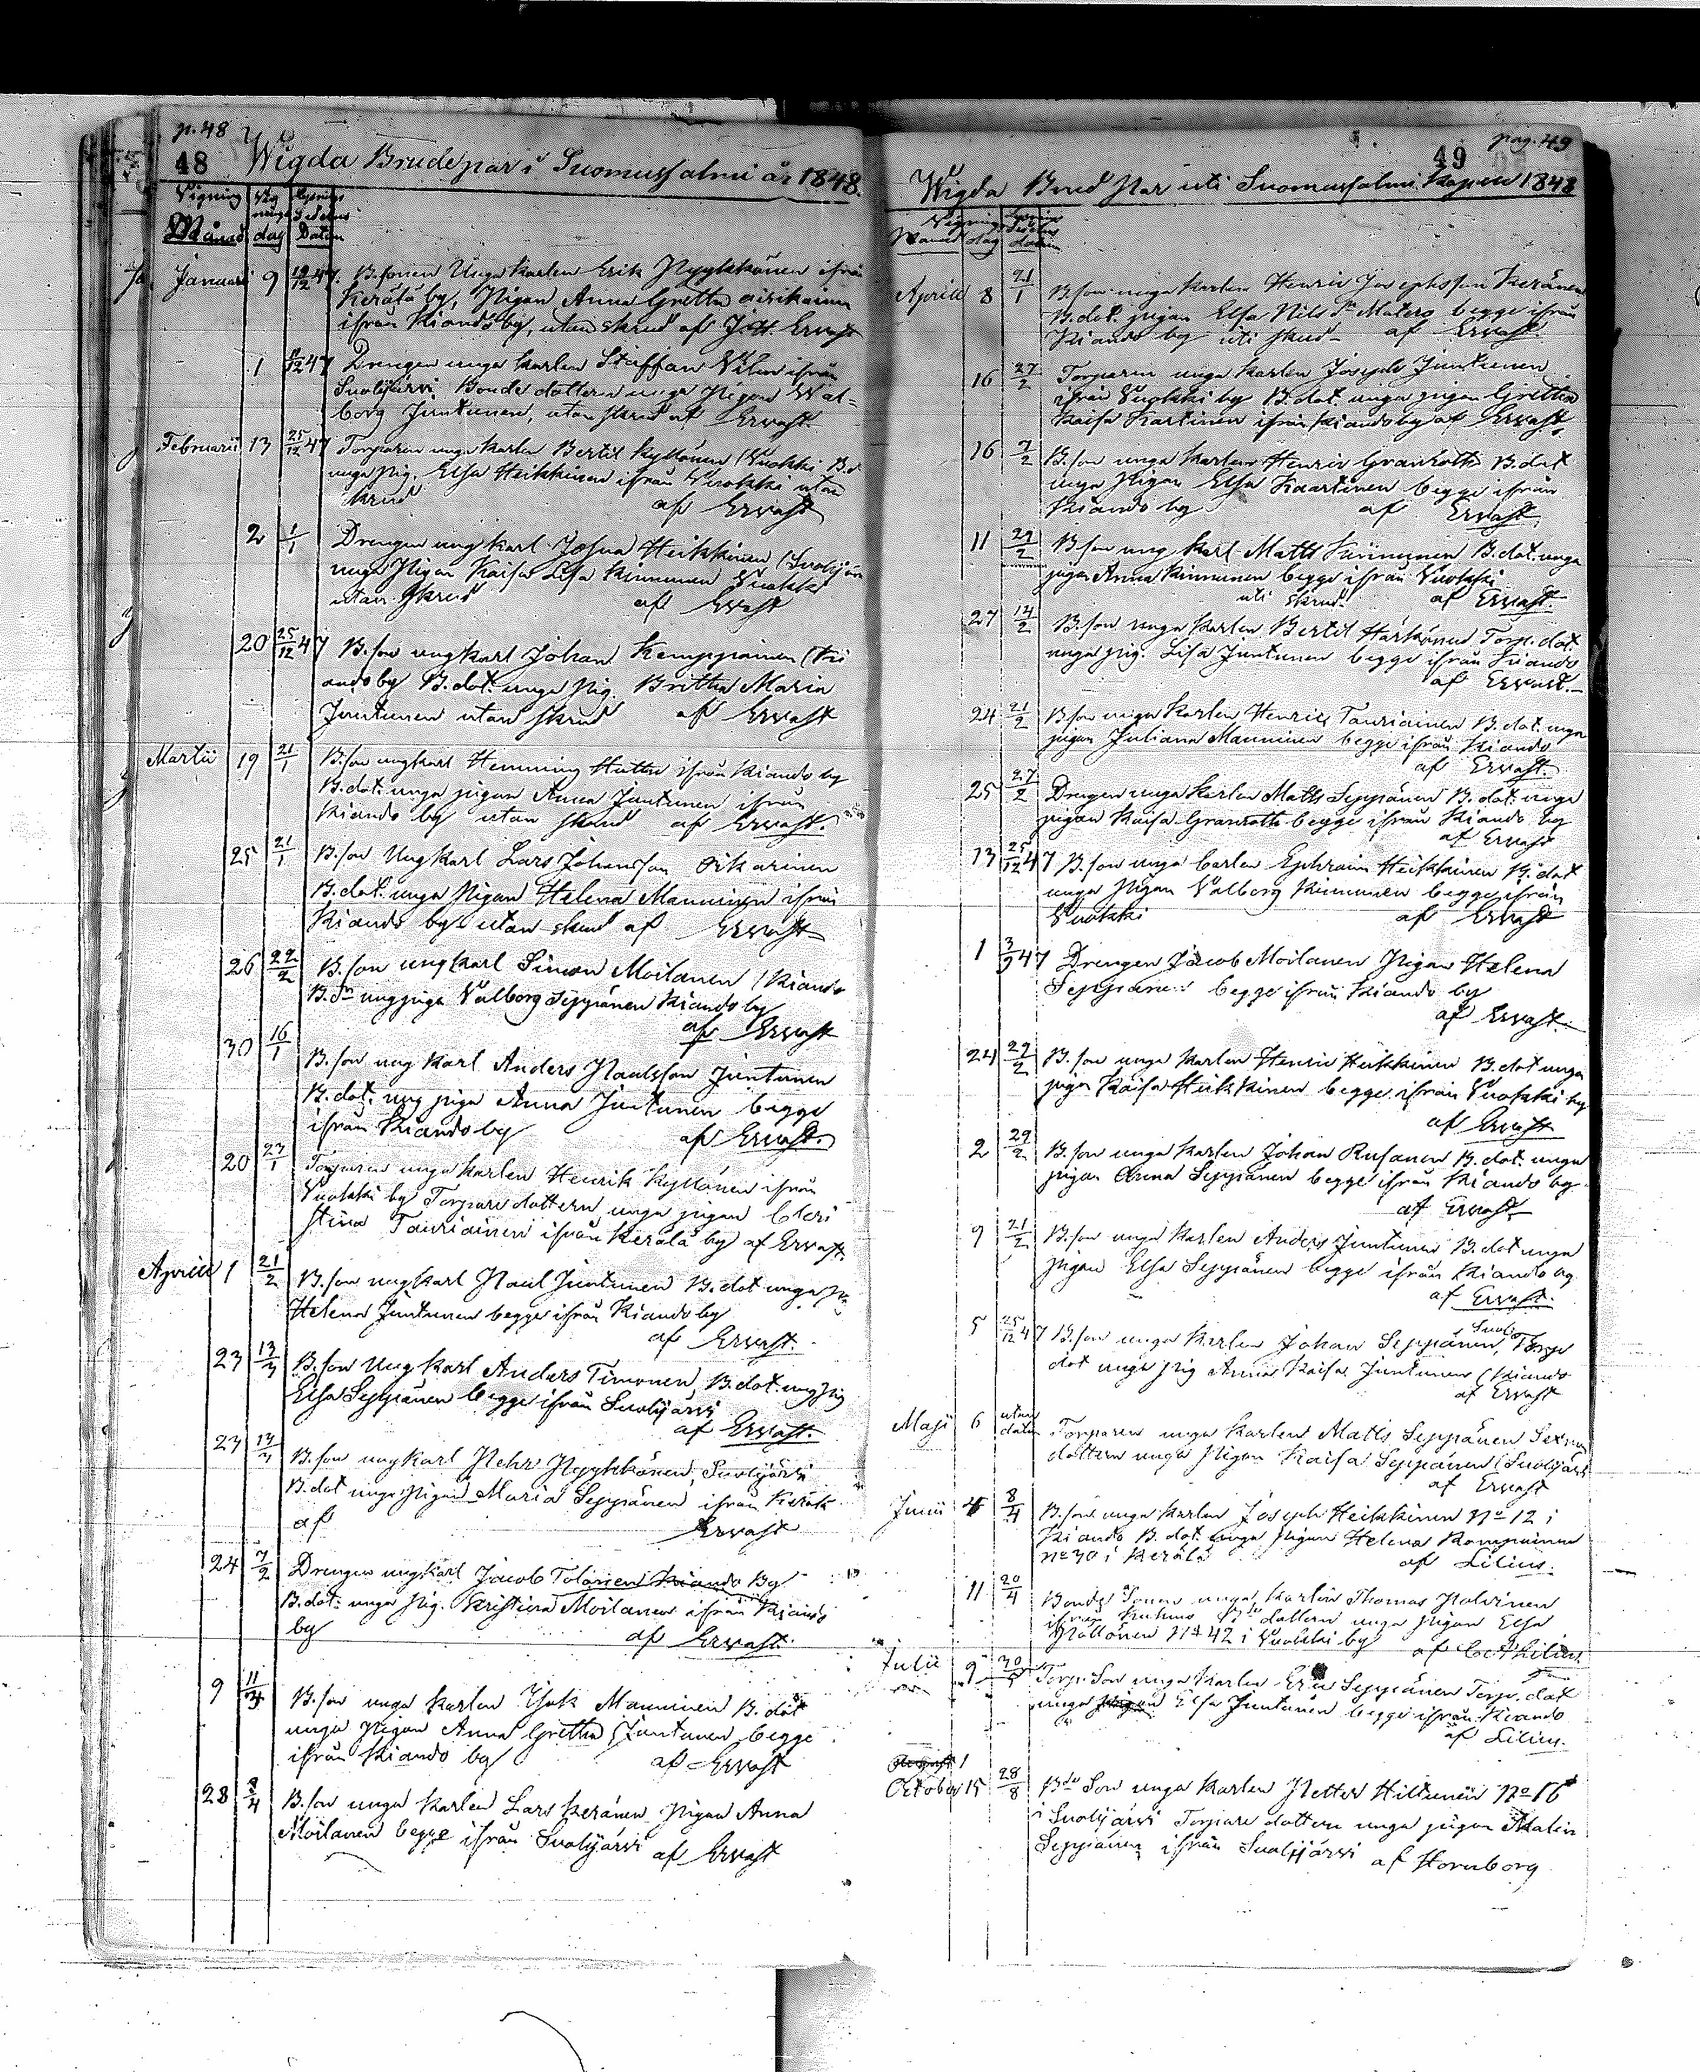 p. 48
48 Wigda Brudepar i Suomussalmi år 1848.
Vignings
Månad dag Datum
Januari 9 19/12 47. B.sonen Unga Karlen Erik Pyykkönen ifrån
Kerälä by, Pigan Anna Gretha
ifrån Kiando by, utan skrud af Ervast
1 47 Drengen unga karlen Staffan ifrån
Suolijärvi Bonde dottren unga Pigan Wal-
borg Juntunen, utan skrud af Ervast.
Februarii 13 25/12 47 Torparen unga karlen Bertil Kyllönen (Vuokki B.d.
unga pig. Elsa Heikkinen ifrån Vuokki utan
skrud af Ervast
2 1/1 Drengen ung karl Josua Heikkinen (Suolijär
unga Pigan Kaisa Lisa Kinnunen Vuokki
utan skrud af Ervast
20 25/12 47 B.son ungkarl Johan Kemppainen (Ki
ando by B.dot. unga Pig. Britha Maria
Juntunen utan skrud af Ervast
Martii 19 21/1 B.son ungkarl Hemming Huttu ifrån Kiando by
B.dot. unga pigan Anna Juntunen ifrån
Kiando by utan skrud af Ervast.
25 21/1 B.son Ungkarl Lars Johansson Oikarinen
B.dot. unga Pigan Helena Manninen ifrån
Kiando by utan skrud af Ervast
26 22/2 B.son ungkarl Simon Moilanen (Kiando
B.dn ungpiga Valborg Seppänen Kiando by
af Ervast
30 16/1
B.son ung karl Anders Paulsson Juntunen
B.dot. ung piga Anna Juntunen begge
ifrån Kiando by af Ervast.
20 27/1 Torparen unga karlen Henrik Kyllönen ifrån
Vuokki by Torpare dottern unga pigan Chri
stina Tauriainen ifrån Kerälä by af Ervast.
Aprill 1 21/2 B.son ungkarl Paul Juntunen B.dot unga pi
Helena Juntunen begge ifrån Kiando by
af Ervast.
23 13/3 B.son Ung karl Anders Timonen, B.dot. ung pig
Elsa Seppänen begge ifrån Suolijärvi
af Ervast.
23 13/3 B.son ungkarl Pehr Pyykkönen, Suolijärvi
B.dot unga Pigan Maria Seppänen ifrån Kerälä
af Ervast
24 7/2 Drengen ung karl Jacob Tolonen Kiando By
B.dot. unga Pig. Kristina Moilanen ifrån Kiando
by af Ervast.
9 B.son unga karlen Isak Manninen B.dot
unga Pigan Anna Gretha Juntunen begge
ifrån Kiando by af Ervast
28 8/4 B.son unga Karlen Lars Keränen Pigan Anna
Moilanen begge ifrån Suolijärvi af Ervast
pag. 49
49
Wigda Brud Par uti Suomussalmi Kapell 1848
Vignings
Månad dag datum
Aprill 8 21/1 B.son unga karlen Henric Josephsson Keränen
B.dot. pigan Elsa Nils Dr Matero begge ifrån
Kiando by uti skrud af Ervast.
16 27/2 Torparen unga karlen Joseph Juntunen
ifrån Vuokki by B.dot. unga pigan Gretha
Kaisa Kartinen ifrån Kiando by af Ervast.
16 7/2 B.son unga karlen Henric Granroth B.dot
unga Pigan Elsa Kaartinen begge ifrån
Kiando by af Ervast
11 29/2 B.son ung karl Matts Kinnunen B.dot. unga
pigan Anna Kinnunen begge ifrån Vuokki
uti skrud. af Ervast.
27 14/2 B.son unga karlen Bertil Härkönen Torp. dot.
unga pig. Lisa Juntunen begge ifrån Kiando
af Ervast.
24 21/2 B.son unga karlen Henric Tauriainen B.dot. unga
pigan Juliana Manninen begge ifrån Kiando
af Ervast.
25 27/2 Drengen unga karlen Matts Seppänen B. dot. unga
pigan Kaisa Granroth begge ifrån Kiando by
af Ervast
13 25/12 47 B.son unga karlen Ephraim Heikkinen B.dot
unga Pigan Valborg Kinnunen begge ifrån
Vuokki af Ervast
1 47 Drengen Jacob Moilanen Pigan Helena
Seppänen begge ifrån Kiando by
af Ervast.
24 29/2 B.son unga karlen Henric Heikkinen B.dot unga
pigan Kaisa Heikkinen begge ifrån Vuokki by
af Ervast
2 29/2 B.son unga karlen Johan Rusanen B.dot. unga
pigan Anna Seppänen begge ifrån Kiando by
af Ervast
9 21/2 B.son unga karlen Anders Juntunen B.dot unga
pigan Elsa Seppänen begge ifrån Kiando by
af Ervast.
5 25/12 47 B.son unga karlen Johan Seppänen, Torp
dot unga pig Anna Kaisa Juntunen (Kiando
af Ervast
Maji 6 utan datum Torparen unga Karlen Matts Seppänen Sexman
dottern unga Pigan Kaisa Seppänen (Suolijärvi
af Ervast
Junii 4 8/4 B.son unga karlen Joseph Heikkinen No 12 i
Kiando B.dot. unga Pigan Helena Komunainen
No 30 i Kerälä af Lilius.
11 20/4 Bonde Sonen unga Karlen Thomas Polvinen
ifrån Kuhmo dottern unga Pigan Elsa
No 42 i Vuokki by af Lilius
Julii 9 Torp. Son unga Karlen Seppänen Torp. dot
unga Pigan Elsa Juntunen begge ifrån Kiando
af Lilius.
October 15 28/8 Bde Son unga Karlen Petter Hiltunen No 16
i Suolijärvi Torpare dottern unga pigan Malin
Seppänen ifrån Suolijärvi af Hornborg